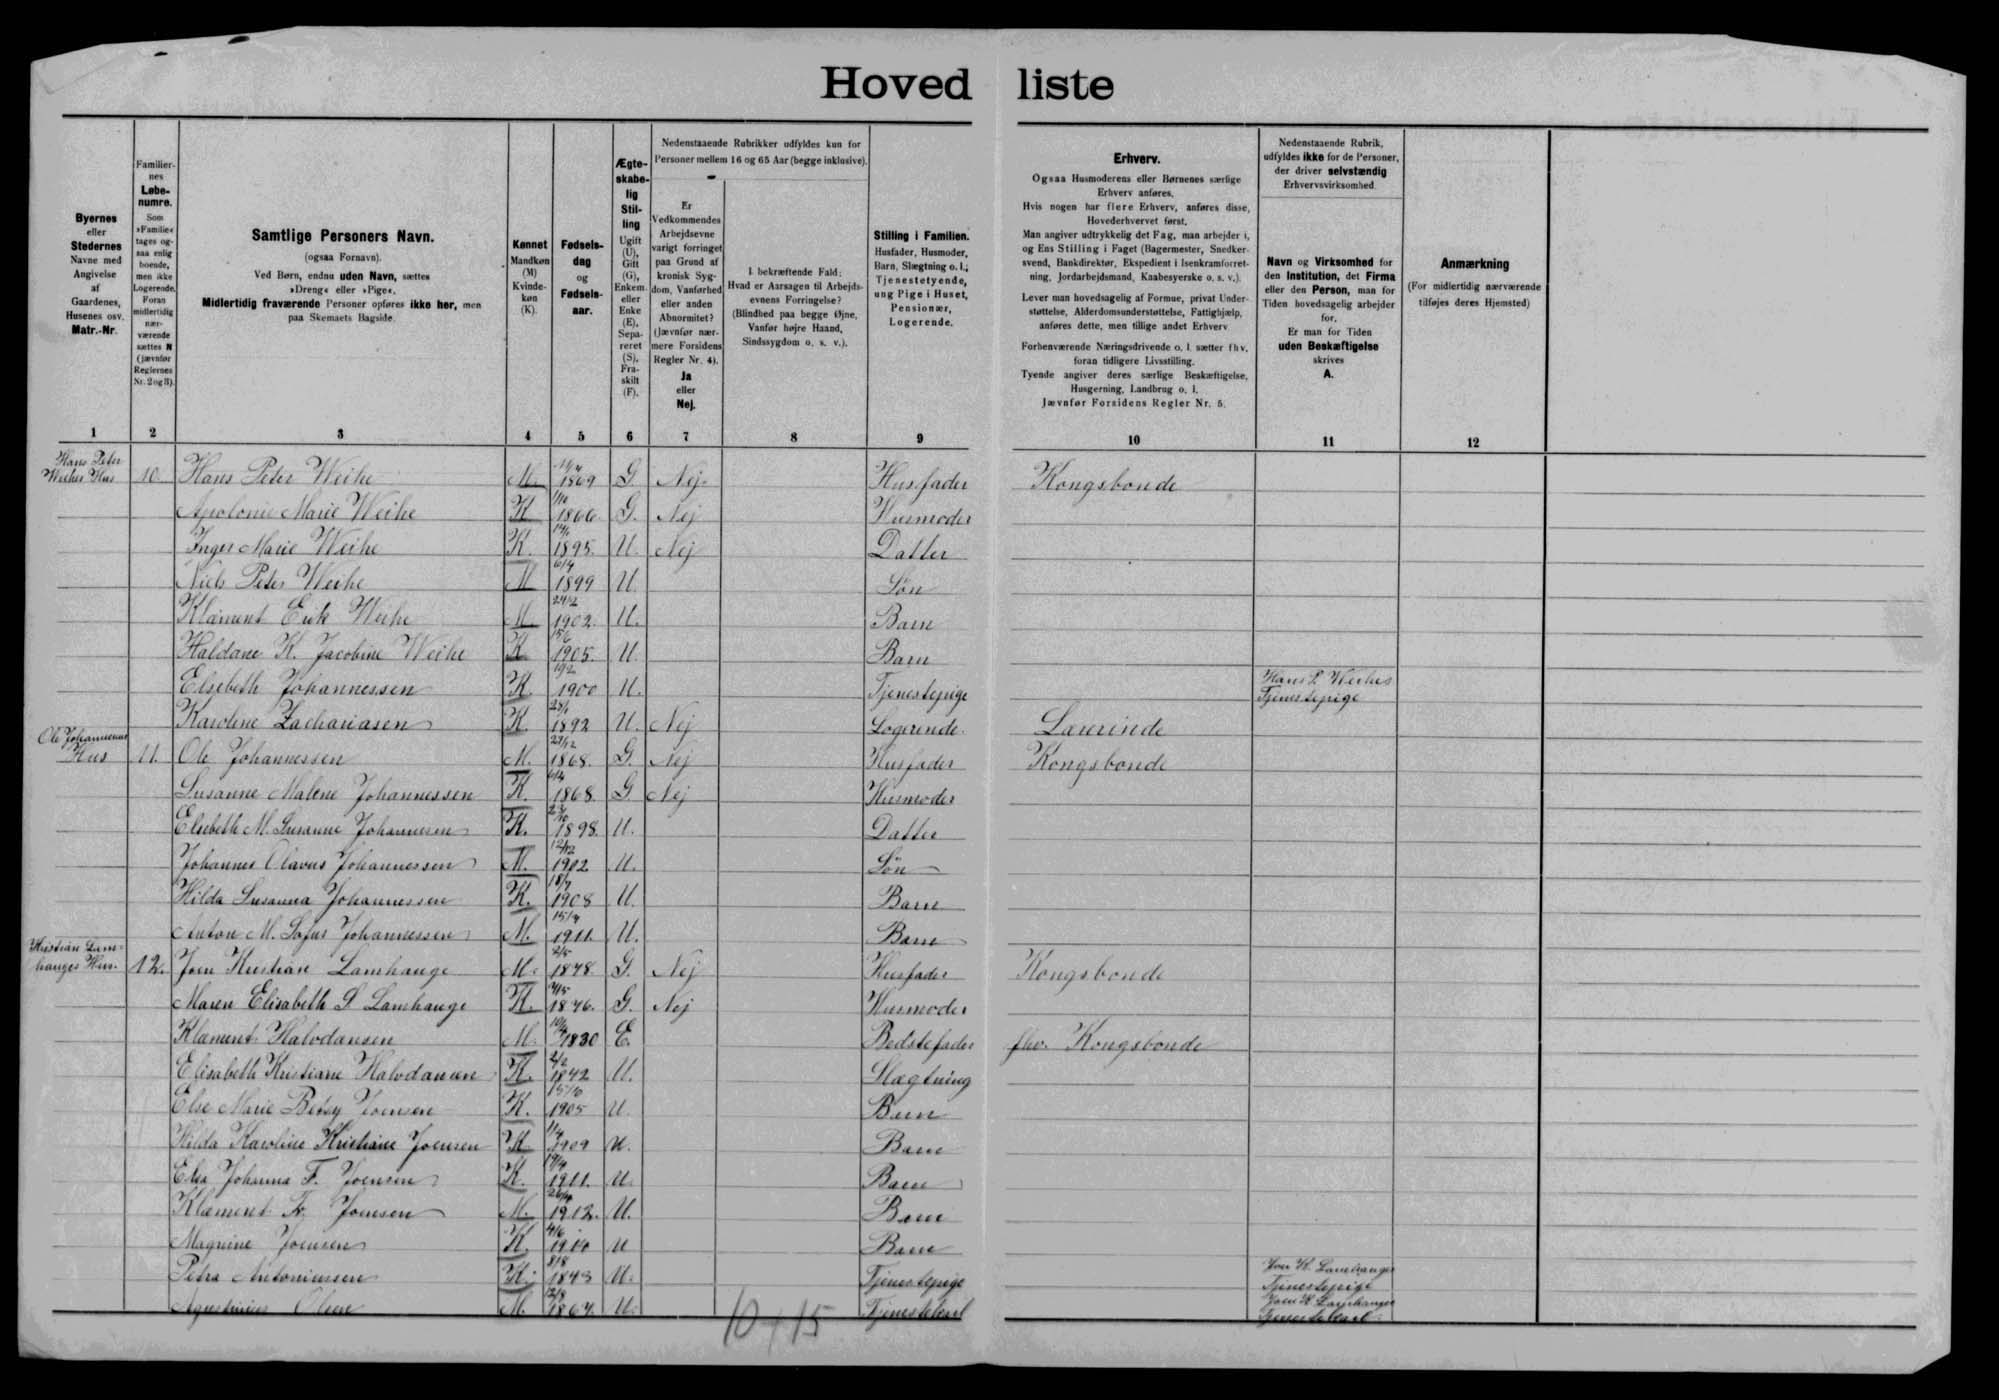 Hoved liste
Byernes
eller
Stedernes
Navne med
Angivelse
af
Gaardenes,
Husenes osv.
Matr.-Nr.
1
Familier-
nes
Løbe-
numre.
Som
»Familie«
tages og-
saa enlig
boende,
men ikke
Logerende.
Foran
midlertidig
nær-
værende
sættes N
(jævnfør
Reglernes
Nr. 2 og 3).
2
Samtlige Personers Navn.
(ogsaa Fornavn).
Ved Børn, endnu uden Navn, sættes
»Dreng« eller »Pige«.
Midlertidig fraværende Personer opføres ikke her, men
paa Skemaets Bagside.
3
Kønnet
Mandkøn
(M)
Kvinde-
køn
(K).
4
Fødsels-
dag
og
Fødsels-
aar.
5
Ægte-
skabe-
lig
Stil-
ling
Ugift
(U),
Gift
(G),
Enkem.
eller
Enke
(E),
Sepa-
reret
(S),
Fra-
skilt
(F).
6
Nedenstaaende Rubrikker udfyldes kun for
Personer mellem 16 og 65 Aar (begge inklusive).
Er
Vedkommendes
Arbejdsevne
varigt forringet
paa Grund af
kronisk Syg-
dom, Vanførhed
eller anden
Abnormitet?
(Jævnfør nær-
mere Forsidens
Regler Nr. 4).
Ja
eller
Nej.
7
I bekræftende Fald:
Hvad er Aarsagen til Arbejds-
evnens Forringelse?
(Blindhed paa begge Øjne,
Vanfør højre Haand,
Sindssygdom o. s. v.).
8
Stilling i Familien.
Husfader, Husmoder,
Barn, Slægtning o. l.;
Tjenestetyende,
ung Pige i Huset,
Pensionær,
Logerende.
9
Erhverv.
Ogsaa Husmoderens eller Børnenes særlige
Erhverv anføres.
Hvis nogen har flere Erhverv, anføres disse,
Hovederhvervet først.
Man angiver udtrykkelig det Fag, man arbejder i,
og Ens Stilling i Faget (Bagermester, Snedker-
svend, Bankdirektør, Ekspedient i Isenkramforret-
ning, Jordarbejdsmand, Kaabesyerske o. s. v.).
Lever man hovedsagelig af Formue, privat Under-
støttelse, Alderdomsunderstøttelse, Fattighjælp,
anføres dette, men tillige andet Erhverv
Forhenværende Næringsdrivende o. l. sætter fhv.
foran tidligere Livsstilling.
Tyende angiver deres særlige Beskæftigelse,
Husgerning, Landbrug o. l.
Jævnfør Forsidens Regler Nr. 5.
10
Nedenstaaende Rubrik,
udfyldes ikke for de Personer,
der driver selvstændig
Erhvervsvirksomhed.
Navn og Virksomhed for
den Institution, det Firma
eller den Person, man for
Tiden hovedsagelig arbejder
for.
Er man for Tiden
uden Beskæftigelse
skrives
A.
11
Anmærkning
(For midlertidig nærværende
tilføjes deres Hjemsted)
12
Hans Peter
Weihes Hus 10. Hans Peter Weihe M. 11/4 1869 G. Nej. Husfader Kongsbonde
Apolonie Marie Weihe K 1/10 1866. G. Nej Husmoder
Inger Marie Weihe K. 1895. U. Nej Datter
Niels Peter Weihe M 6/4 1899 U. Søn
Klæment Erik Weihe M. 24/2 1902. U. Barn
Haldane K. Jacobine Weihe K 15/6 1905. U. Barn
Elsebeth Johannessen K. 10/2 1900 U. Tjenestepige Hans P. Weihes
Tjenestepige
Karoline Zachariasen K. 28/1 1892 U. Nej Logerende. Lærerinde
Ole Johannessens
Hus 11. Ole Johannessen M. 29/12 1868. G. Nej Husfader Kongsbonde
Susanne Malene Johannessen K. 1868. G. Nej Husmoder
Elsebeth M. Susanne Johannesen K. 1898. U. Datter
Johannes Olavus Johannessen M. 12/12 1902 U. Søn
Hilda Susanna Johannessen K. 18/7 1908 U. Barn
Anton M. Sofus Johannessen M. 15/4 1911. U. Barn
Kristian Lam-
hauges Hus. 12. Joen Kristian Lamhauge M. 2/5 1848. G. Nej Husfader Kongsbonde
Maren Elisabeth S Lamhauge K. 1846. G. Nej Husmoder
Klæment Halvdansen M. 1830 E. Bedstefader fhv. Kongsbonde
Elisabeth Kristiane Halvdansen K. 1842 U. Slægtning
Else Marie Betsy Joensen K. 15/10 1905 U Barn
Hilda Karoline Kristiane Joensen K. 1909 U. Barn
Elsa Johanna F. Joensen K. 19/4 1911. U. Barn
Klæment Fr. Joensen M. 1912. U. Barn
Magnine Joensen K. 4/6 U Barn
Petra Antoniussen K. 8/8 1843 U. Tjenestepige Joen K. Lamhauges
Tjenestepige
Agustinius Olsen M. 12/8 1867. U. Tjenestekarl Joen K. Lamhauges
Tjenestekarl.
10+15